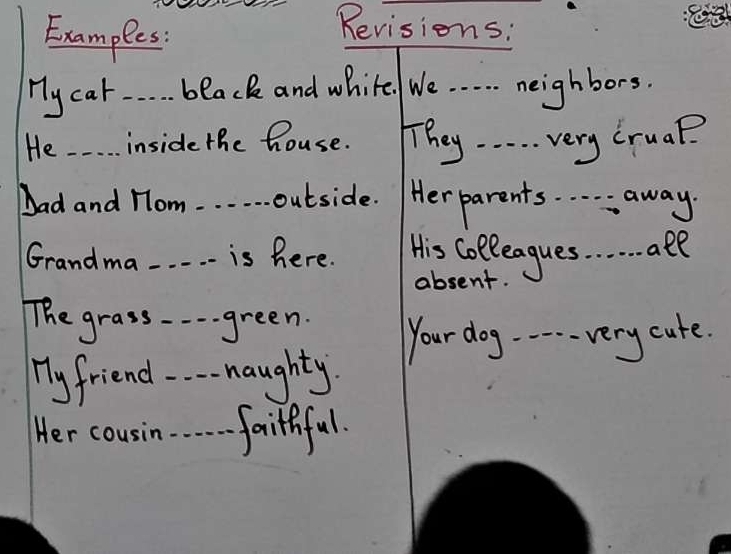 الموضوع:
Revisions:
Examples:
My cat ..... black and white.
He ..... inside the house.
Dad and Mom ...... outside.
Grandma ..... is here.
The grass .... green.
My friend .... naughty.
Her cousin ...... faithful.
We ..... neighbors.
They ..... very crual.
Her parents ..... away.
His Colleagues ...... all
absent.
Your dog ..... very cute.